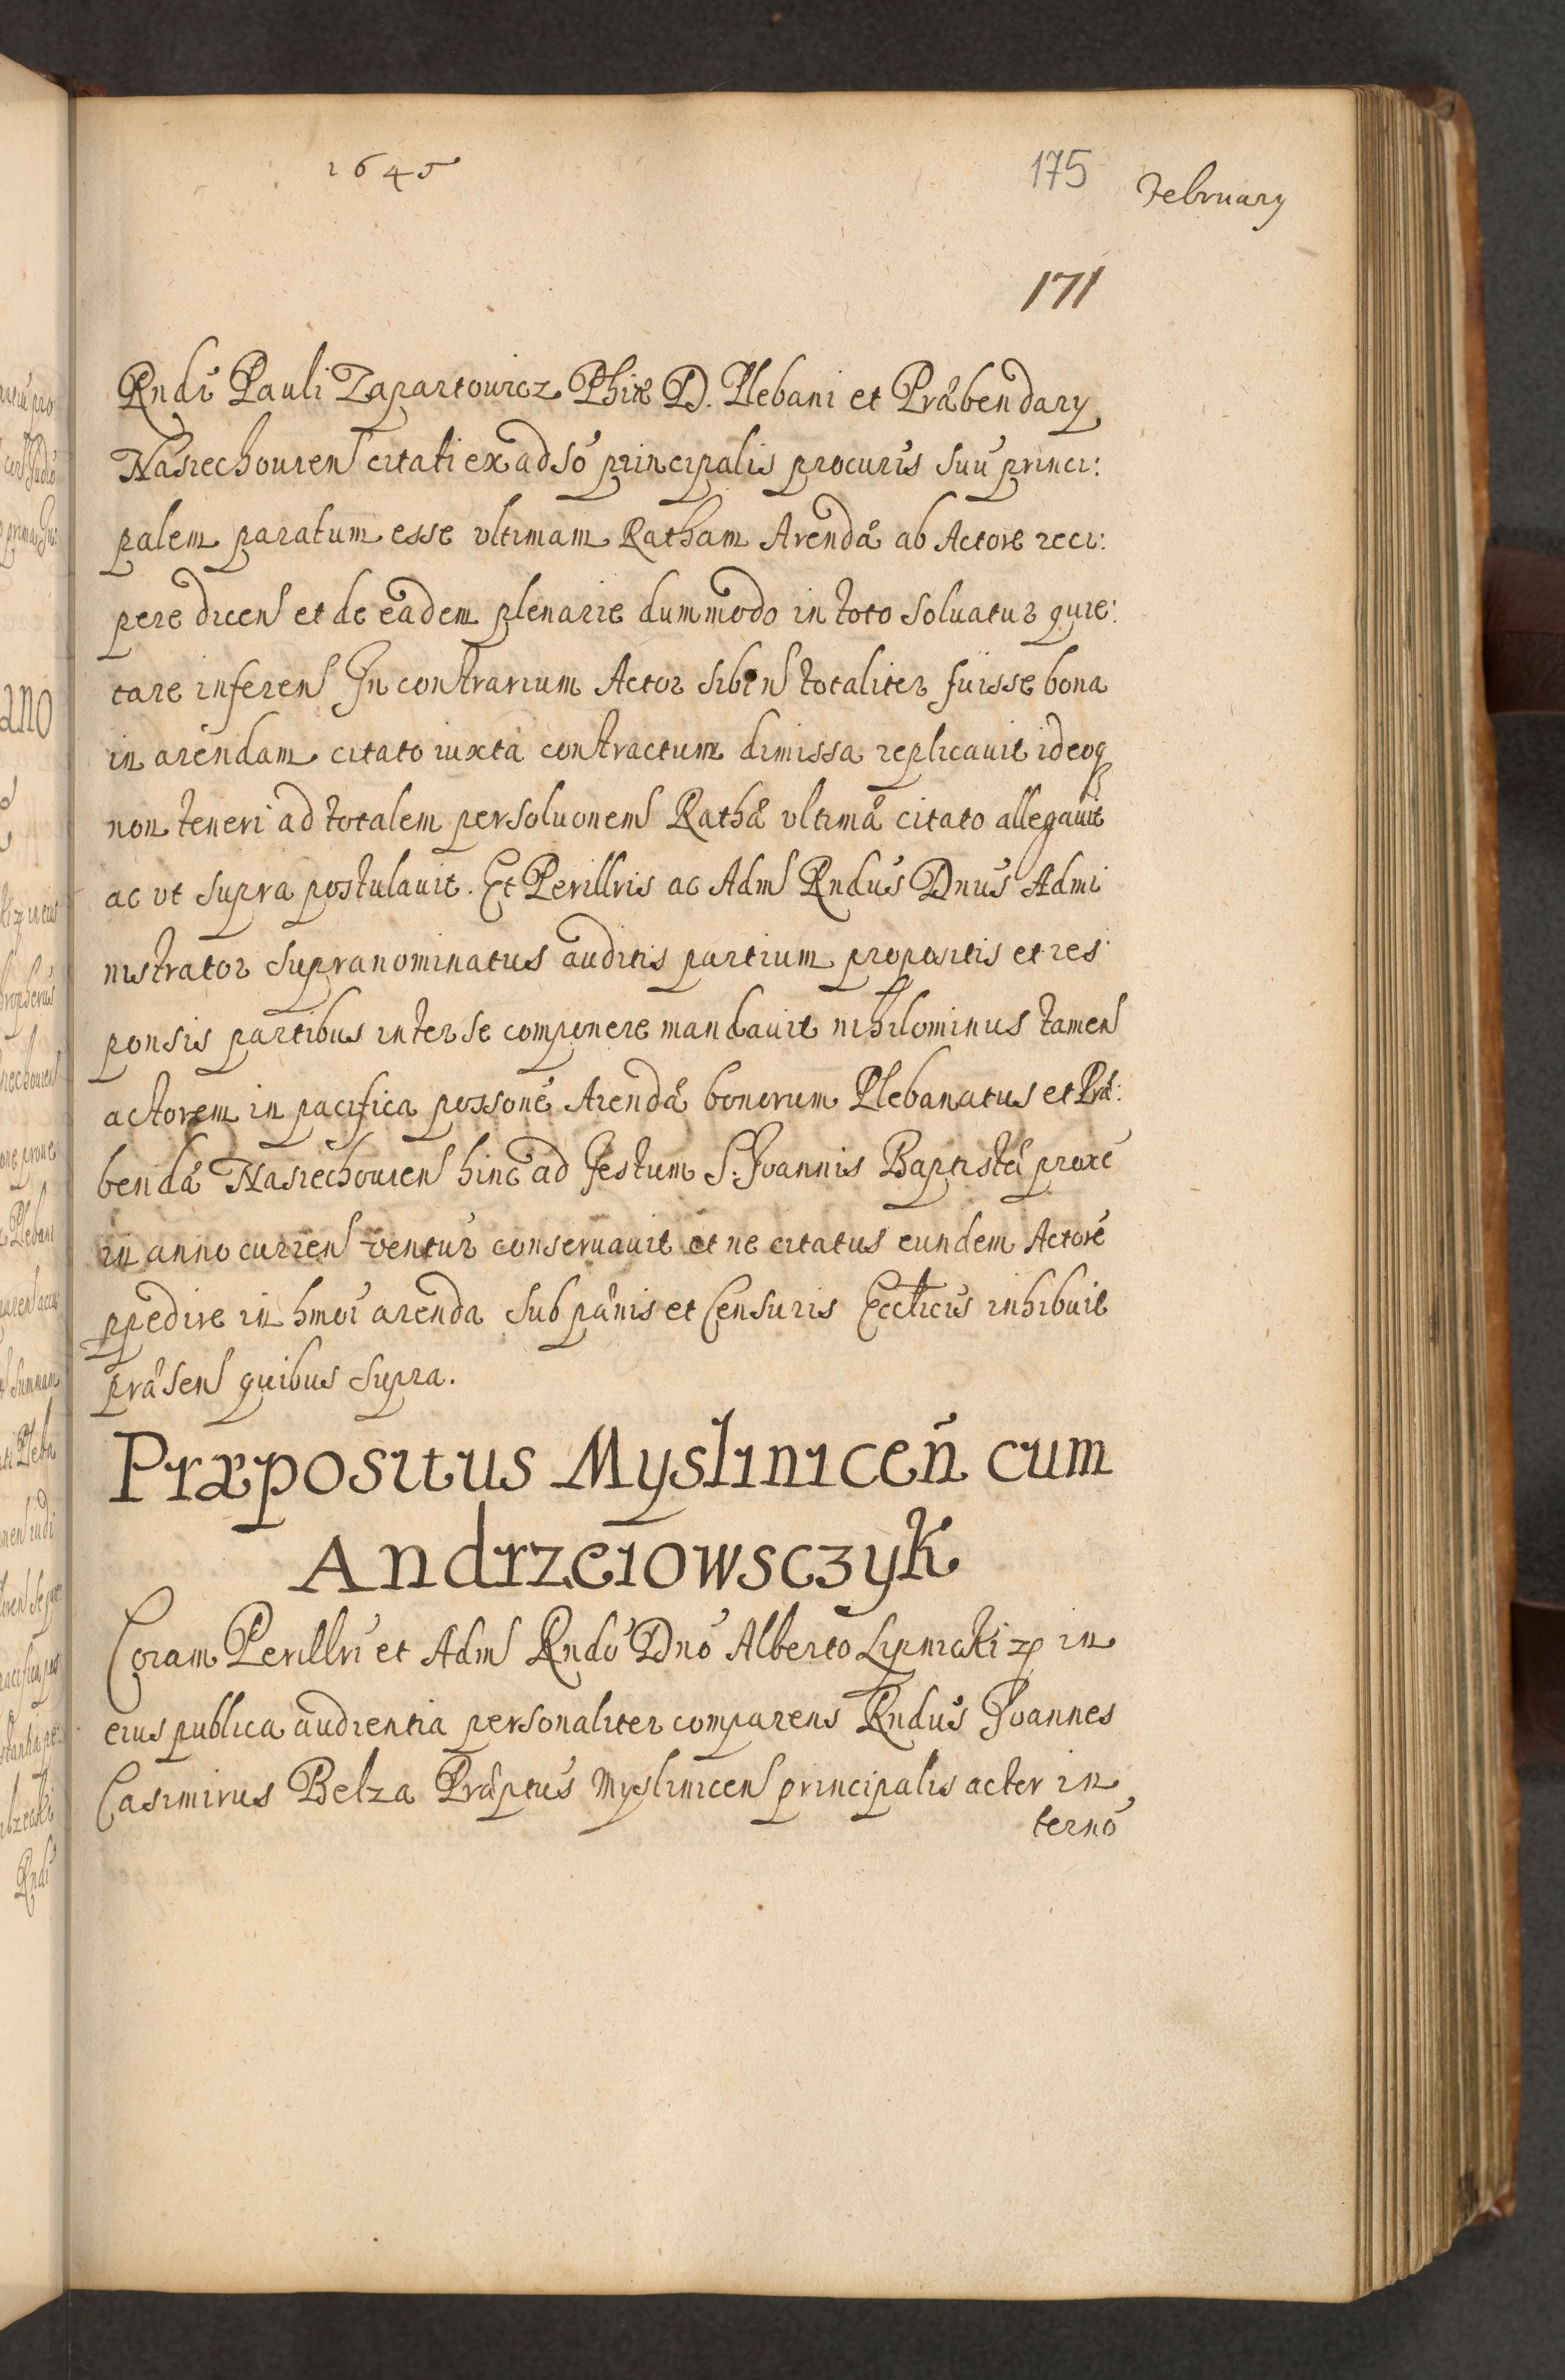 1645
175
February
171
Rndi Pauli Zapartowicz Phiæ D. Plebani et Præbendary
Nasiechowien citati ex adso principalis procuris suu princi:
palem paratum esse ultimam Ratham Arendæ ab Actore reci:
pere dicens et de eadem plenarie dummodo in toto soluatur quie:
tare inferens In contrarium Actor sibi non totaliter fuisse bona
in arendam citato iuxta contractum dimissa replicauit ideoq
non teneri ad totalem persoluonem Rathæ ultimæ citato allegauit
ac ut supra postulauit. Et Perillris ac Adm Rndus Dnus Admi
nistrator supranominatus auditis partium propositis et res:
ponsis partibus inter se componere mandauit nihilominus tamen
actorem in pacifica possone Arendæ bonorum Plebanatus et Præ:
bendæ Nasiechowien hinc ad festum S. Joannis Baptistæ proxe
in anno curren ventur conseruauit et ne citatus eundem Actore
ppedire in hmoi arenda sub pænis et Censuris Ecclicis inhibuit
præsen quibus supra.
Præpositus Mysliniceñ cum
Andrzeiowsczyk
Coram Perillri et Adm Rndo Dno Alberto Lipnicki zp in
eius publica audientia personaliter comparens Rndus Joannes
Casimirus Belza Præptus Myslinicen principalis actor in
terno